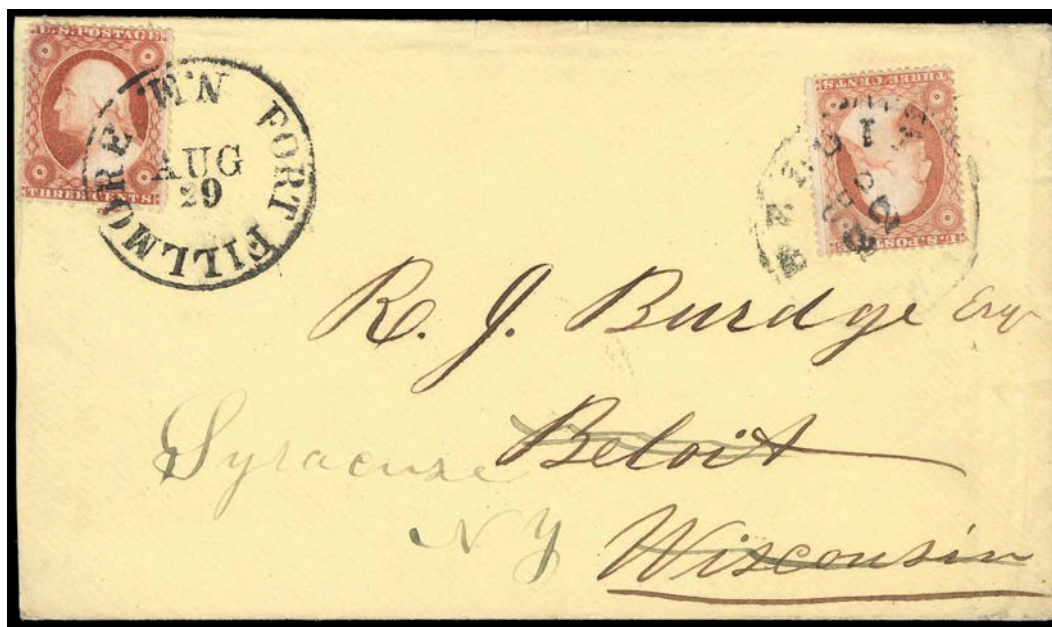 U.S. POSTAGE
THREE CENTS
FORT FILLMORE N.M
AUG
29
THREE CENTS
U.S. POST
R. J. Burdge Esqr
Syracuse Beloit
N Y Wisconsin